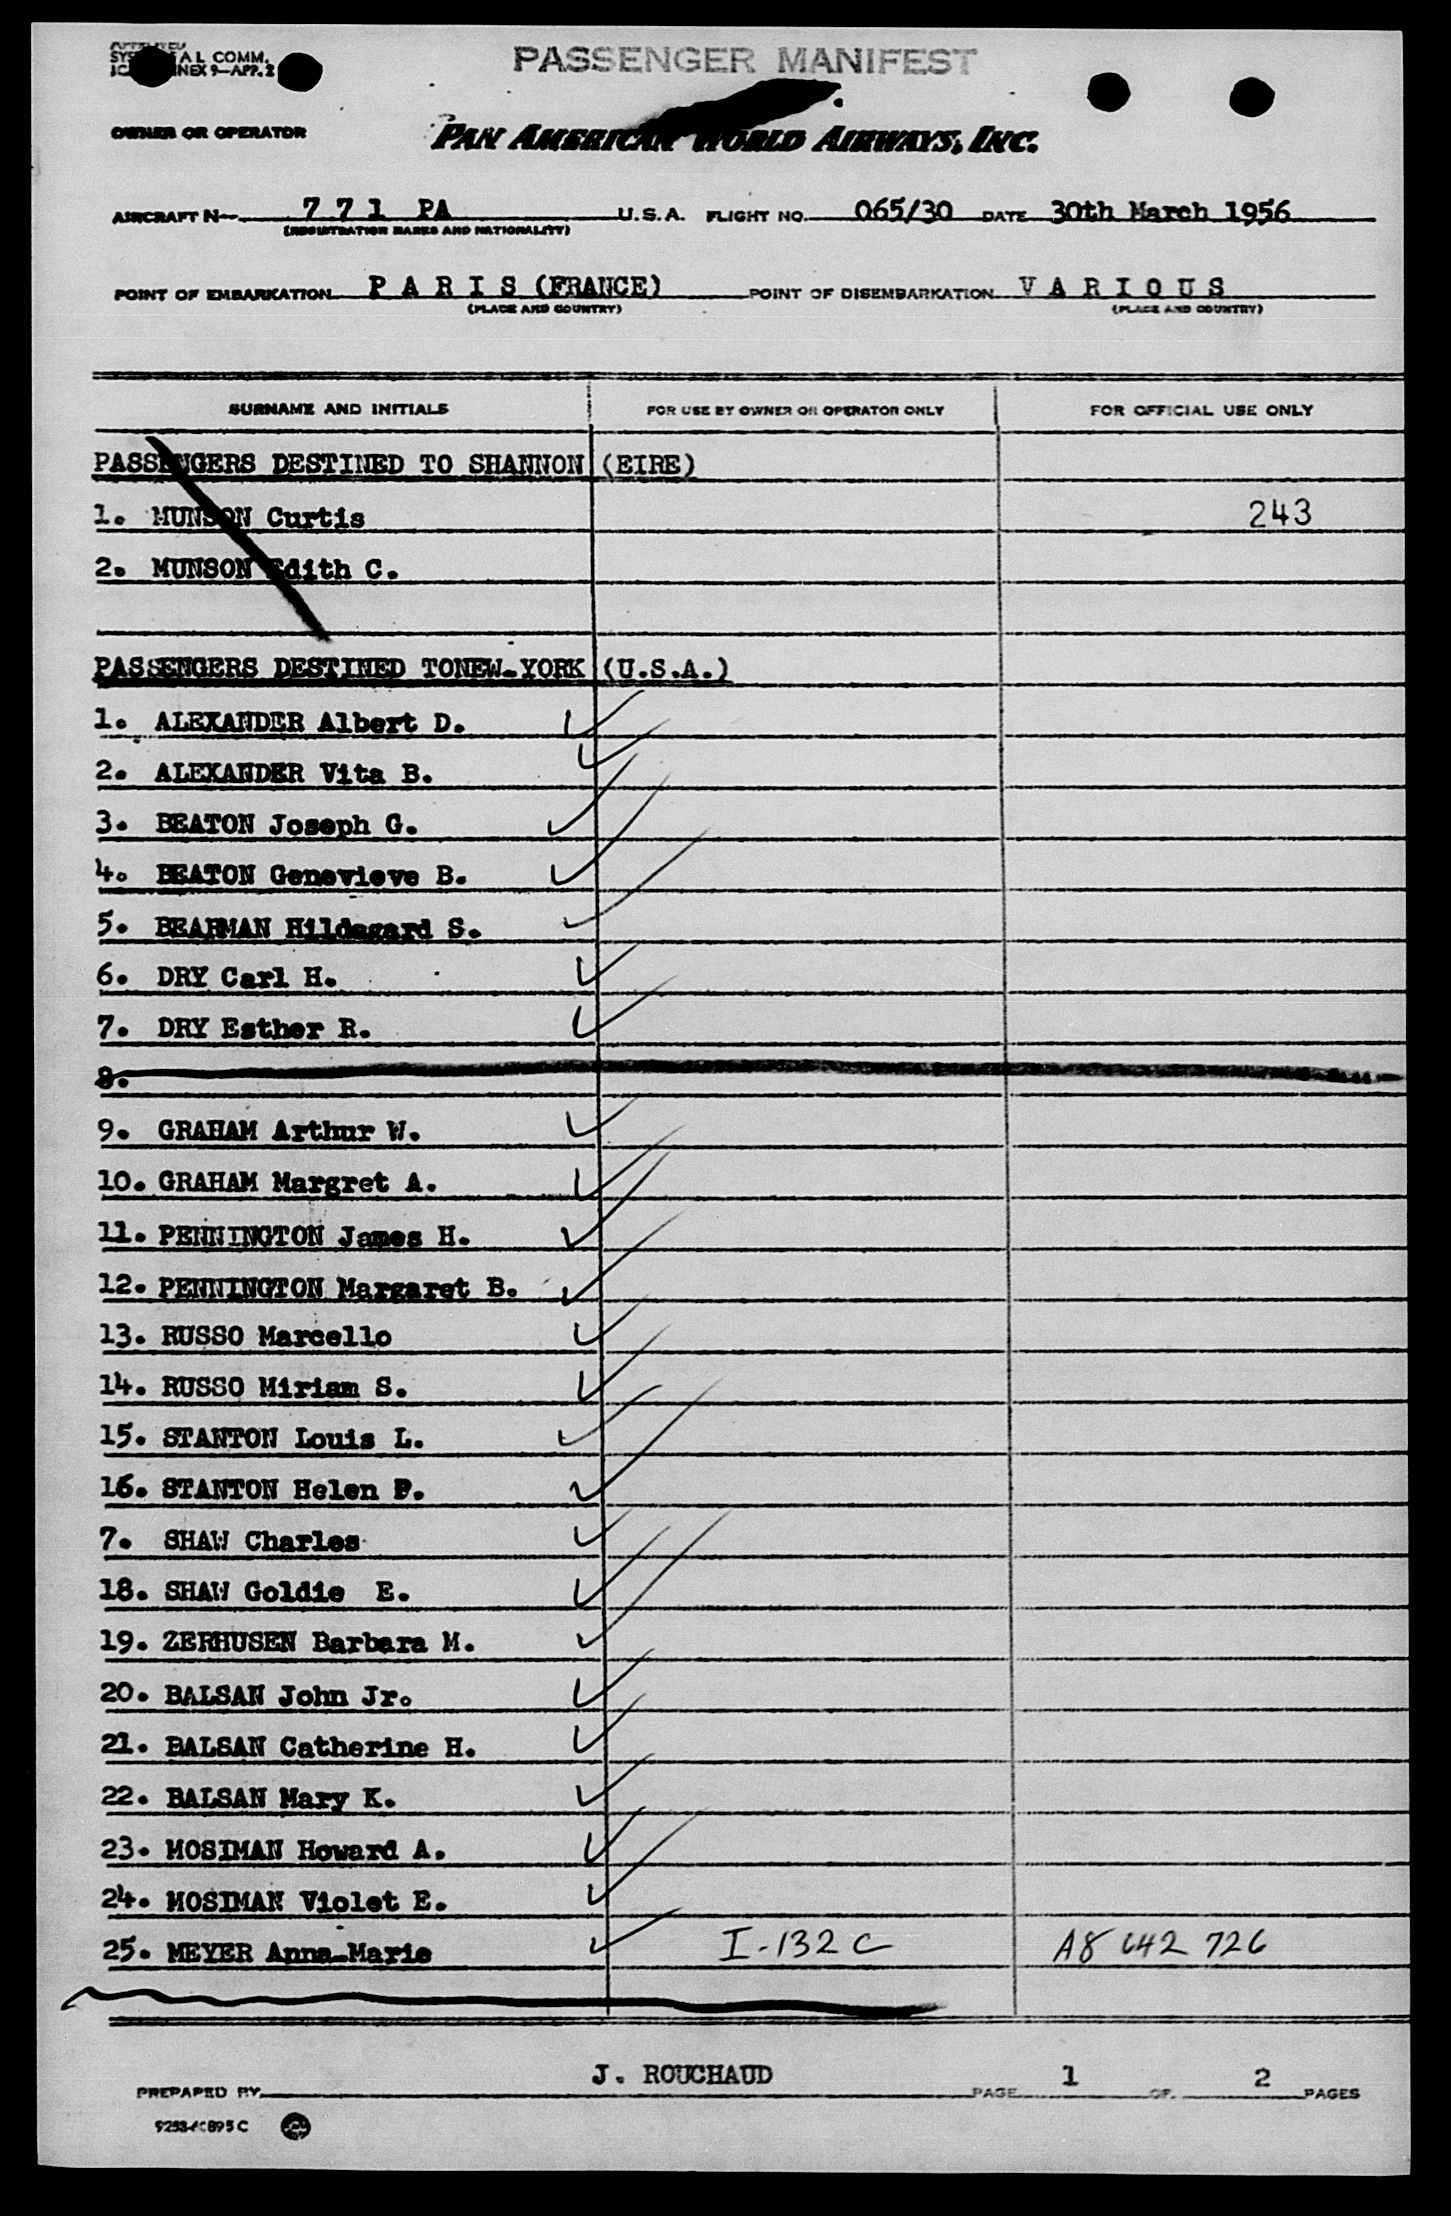 APPROVED
AL COMM.
NEX 9—APP. 2
PASSENGER MANIFEST
OWNER OR OPERATOR
PAN AMERICAN WORLD AIRWAYS, INC.
AIRCRAFT N— 7 7 1 PA U.S.A. FLIGHT NO. 065/30 DATE 30th March 1956
(REGISTRATION MARKS AND NATIONALITY)
POINT OF EMBARKATION P A R I S (FRANCE) POINT OF DISEMBARKATION V A R I O U S
(PLACE AND COUNTRY) (PLACE AND COUNTRY)
SURNAME AND INITIALS FOR USE BY OWNER OR OPERATOR ONLY FOR OFFICIAL USE ONLY
PASSENGERS DESTINED TO SHANNON (EIRE)
1. MUNSON Curtis 243
2. MUNSON Edith C.
PASSENGERS DESTINED TONEW-YORK (U.S.A.)
1. ALEXANDER Albert D.
2. ALEXANDER Vita B.
3. BEATON Joseph G.
4. BEATON Genevieve B.
5. BEARMAN Hildegard S.
6. DRY Carl H.
7. DRY Esther R.
8.
9. GRAHAM Arthur W.
10. GRAHAM Margret A.
11. PENNINGTON James H.
12. PENNINGTON Margaret B.
13. RUSSO Marcello
14. RUSSO Miriam S.
15. STANTON Louis L.
16. STANTON Helen F.
7. SHAW Charles
18. SHAW Goldie E.
19. ZERHUSEN Barbara M.
20. BALSAN John Jr.
21. BALSAN Catherine H.
22. BALSAN Mary K.
23. MOSIMAN Howard A.
24. MOSIMAN Violet E.
25. MEYER Anna-Marie I-132 C A8 642 726
PREPARED BY J. ROUCHAUD PAGE 1 OF 2 PAGES